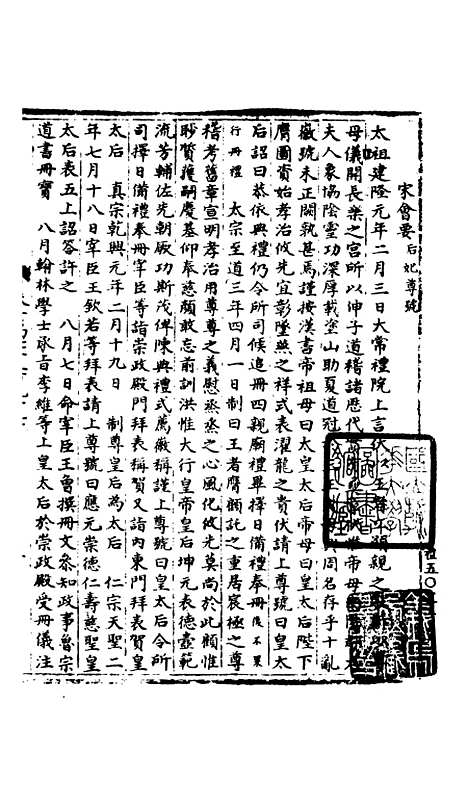 宋會要 后妃尊號
太祖建隆元年二月三日大常禮院上言伏 親之
母儀開長樂之宮所以伸子道稽諸歷代 帝母
夫人象協陰靈功深厚載塗山助夏道冠 周名存乎十亂
徽號未正闕孰甚焉謹按漢書帝祖母曰太皇太后帝母曰皇太后陛下
膺圖資始孝治攸先宜彰墜燕之祥式表濯龍之貴伏請上尊號曰皇太
后詔曰恭依典禮仍令所司候追冊四親廟禮畢擇日備禮奉冊後不果
行冊禮 太宗至道三年四月一日制曰王者膺顧託之重居宸極之尊
稽考舊章宣明孝治用尊尊之義慰烝烝之心風化攸先莫尚於此顧惟
眇質獲嗣慶基仰奉慈顏敢忘前訓洪惟大行皇帝皇后坤元表德壼範
流芳輔佐先朝厥功斯茂俾陳典禮式薦徽稱謹上尊號曰皇太后令所
司擇日備禮奉冊宰臣等詣崇政殿門拜表稱賀又詣內東門拜表賀皇
太后 真宗乾興元年二月十九日 制尊皇后為太后 仁宗天聖二
年七月十八日宰臣王欽若等拜表請上尊號曰應元崇德仁壽慈聖皇
太后表五上詔答許之 八月七日命宰臣王曾撰冊文叅知政事魯宗
道書冊寶 八月翰林學士承旨李維等上皇太后於崇政殿受冊儀注